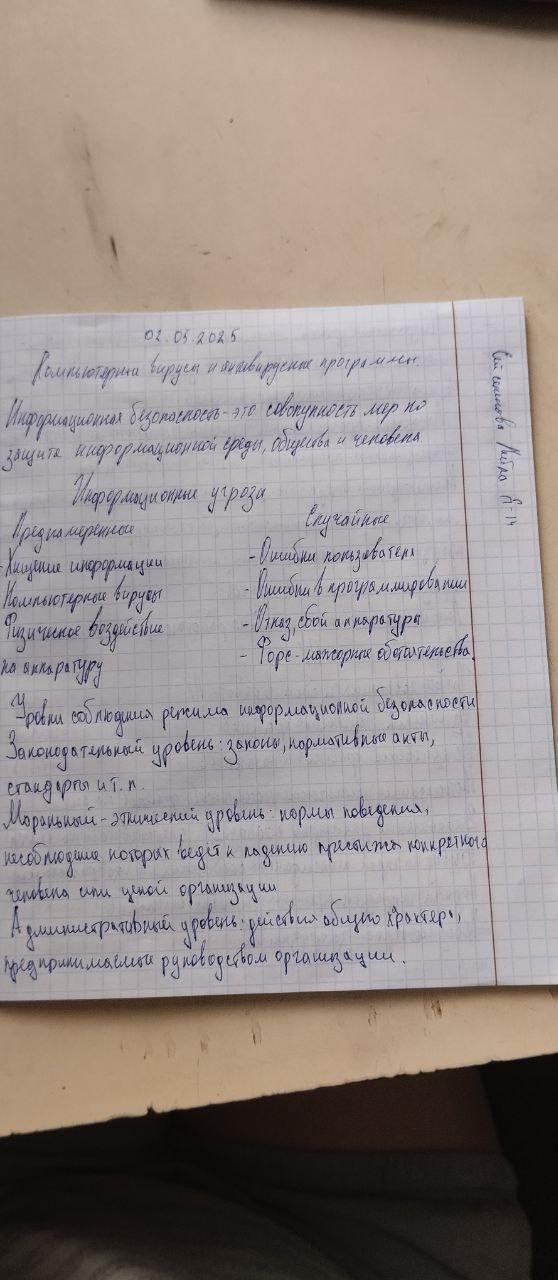 02.05.2025
Компьютерные вирусы и антивирусные программы.
Информационная безопасность - это совокупность мер по
защите информационной среды, общества и человека
Информационные угрозы
Преднамеренные
Случайные
- Хищение информации
- Ошибки пользователя
Компьютерные вирусы
- Ошибки в программировании
Физическое воздействие
- Отказ, сбой аппаратуры
на аппаратуру
- Форс-мажорные обстоятельства.
Уровни соблюдения режима информационной безопасности
Законодательный уровень: законы, нормативные акты,
стандарты и т. п.
Моральный-этнический уровень: нормы поведения,
несоблюдение которых ведет к падению престижа конкретного
человека или целой организации
Административный уровень: действия общего характера,
предпринимаемые руководством организации.